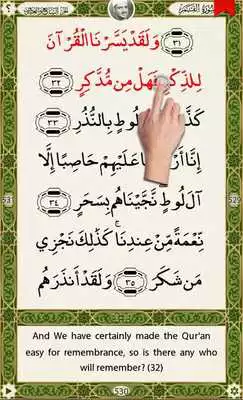 سورة القمر
الجزء السابع والعشرون
؟
٣١ وَلَقَدْ يَسَّرْنَا الْقُرْآنَ
لِلذِّكْرِ فَهَلْ مِن مُّدَّكِرٍ ٣٢
لُوطٍ بِالنُّذُرِ ٣٣
إِنَّا عَلَيْهِمْ حَاصِبًا إِلَّا
آلَ لُوطٍ نَّجَّيْنَاهُم بِسَحَرٍ ٣٤
نِعْمَةً مِّنْ عِندِنَا كَذَٰلِكَ نَجْزِي
مَن شَكَرَ ٣٥ وَلَقَدْ أَنذَرَهُم
And We have certainly made the Qur'an
easy for remembrance, so is there any who
will remember? (32)
530